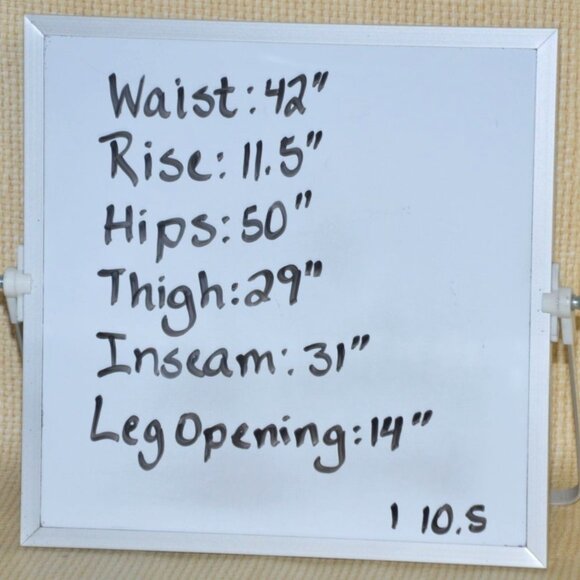 Waist: 42"
Rise: 11.5"
Hips: 50"
Thigh: 29"
Inseam: 31"
Leg Opening: 14"
1 10.5